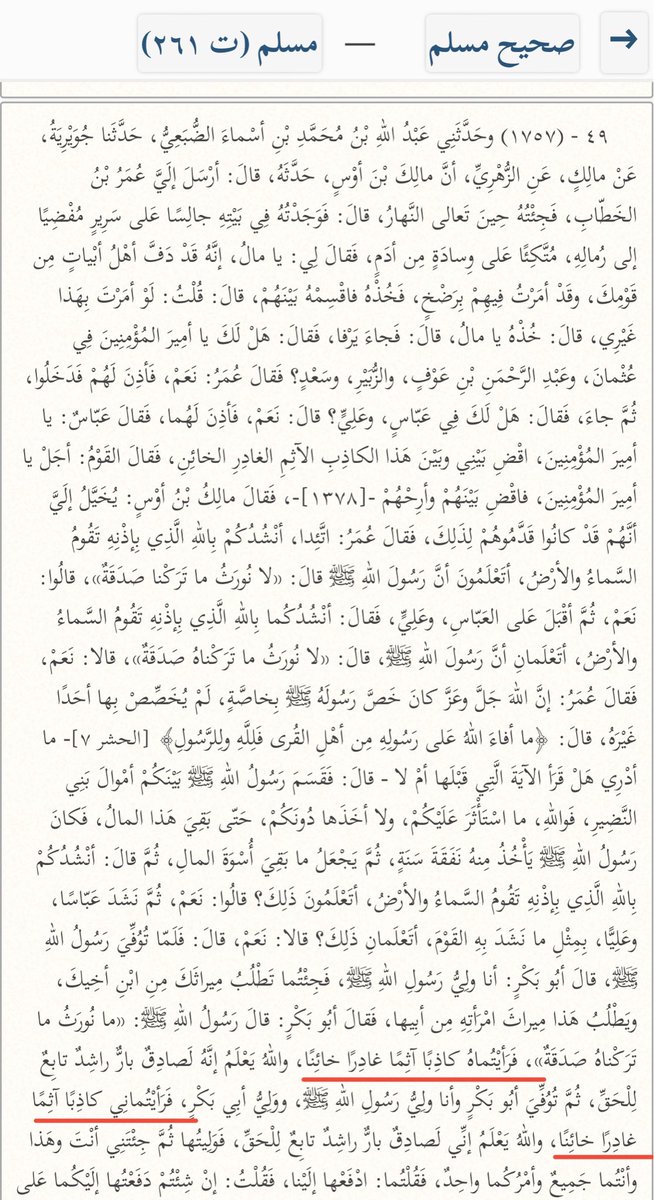 صحيح مسلم — مسلم (ت ٢٦١)
٤٩ - (١٧٥٧) وحَدَّثَنِي عَبْدُ اللهِ بْنُ مُحَمَّدِ بْنِ أسْماءَ الضُّبَعِيُّ، حَدَّثَنا جُوَيْرِيَةُ،
عَنْ مالِكٍ، عَنِ الزُّهْرِيِّ، أنَّ مالِكَ بْنَ أوْسٍ، حَدَّثَهُ، قالَ: أرْسَلَ إلَيَّ عُمَرُ بْنُ
الخَطّابِ، فَجِئْتُهُ حِينَ تَعالى النَّهارُ، قالَ: فَوَجَدْتُهُ فِي بَيْتِهِ جالِسًا عَلى سَرِيرٍ مُفْضِيًا
إلى رُمالِهِ، مُتَّكِئًا عَلى وِسادَةٍ مِن أدَمٍ، فَقالَ لِي: يا مالُ، إنَّهُ قَدْ دَفَّ أهْلُ أبْياتٍ مِن
قَوْمِكَ، وقَدْ أمَرْتُ فِيهِمْ بِرَضْخٍ، فَخُذْهُ فاقْسِمْهُ بَيْنَهُمْ، قالَ: قُلْتُ: لَوْ أمَرْتَ بِهَذا
غَيْرِي، قالَ: خُذْهُ يا مالُ، قالَ: فَجاءَ يَرْفا، فَقالَ: هَلْ لَكَ يا أمِيرَ المُؤْمِنِينَ فِي
عُثْمانَ، وعَبْدِ الرَّحْمَنِ بْنِ عَوْفٍ، والزُّبَيْرِ، وسَعْدٍ؟ فَقالَ عُمَرُ: نَعَمْ، فَأذِنَ لَهُمْ فَدَخَلُوا،
ثُمَّ جاءَ، فَقالَ: هَلْ لَكَ فِي عَبّاسٍ، وعَلِيٍّ؟ قالَ: نَعَمْ، فَأذِنَ لَهُما، فَقالَ عَبّاسٌ: يا
أمِيرَ المُؤْمِنِينَ، اقْضِ بَيْنِي وبَيْنَ هَذا الكاذِبِ الآثِمِ الغادِرِ الخائِنِ، فَقالَ القَوْمُ: أجَلْ يا
أمِيرَ المُؤْمِنِينَ، فاقْضِ بَيْنَهُمْ وأرِحْهُمْ -[١٣٧٨]-، فَقالَ مالِكُ بْنُ أوْسٍ: يُخَيَّلُ إلَيَّ
أنَّهُمْ قَدْ كانُوا قَدَّمُوهُمْ لِذَلِكَ، فَقالَ عُمَرُ: اتَّئِدا، أنْشُدُكُمْ بِاللهِ الَّذِي بِإذْنِهِ تَقُومُ
السَّماءُ والأرْضُ، أتَعْلَمُونَ أنَّ رَسُولَ اللهِ ﷺ قالَ: «لا نُورَثُ ما تَرَكْنا صَدَقَةٌ»، قالُوا:
نَعَمْ، ثُمَّ أقْبَلَ عَلى العَبّاسِ، وعَلِيٍّ، فَقالَ: أنْشُدُكُما بِاللهِ الَّذِي بِإذْنِهِ تَقُومُ السَّماءُ
والأرْضُ، أتَعْلَمانِ أنَّ رَسُولَ اللهِ ﷺ، قالَ: «لا نُورَثُ ما تَرَكْناهُ صَدَقَةٌ»، قالا: نَعَمْ،
فَقالَ عُمَرُ: إنَّ اللهَ جَلَّ وعَزَّ كانَ خَصَّ رَسُولَهُ ﷺ بِخاصَّةٍ، لَمْ يُخَصِّصْ بِها أحَدًا
غَيْرَهُ، قالَ: ﴿ما أفاءَ اللهُ عَلى رَسُولِهِ مِن أهْلِ القُرى فَلِلَّهِ ولِلرَّسُولِ﴾ [الحشر ٧]- ما
أدْرِي هَلْ قَرَأ الآيَةَ الَّتِي قَبْلَها أمْ لا - قالَ: فَقَسَمَ رَسُولُ اللهِ ﷺ بَيْنَكُمْ أمْوالَ بَنِي
النَّضِيرِ، فَواللهِ، ما اسْتَأْثَرَ عَلَيْكُمْ، ولا أخَذَها دُونَكُمْ، حَتّى بَقِيَ هَذا المالُ، فَكانَ
رَسُولُ اللهِ ﷺ يَأْخُذُ مِنهُ نَفَقَةَ سَنَةٍ، ثُمَّ يَجْعَلُ ما بَقِيَ أُسْوَةَ المالِ، ثُمَّ قالَ: أنْشُدُكُمْ
بِاللهِ الَّذِي بِإذْنِهِ تَقُومُ السَّماءُ والأرْضُ، أتَعْلَمُونَ ذَلِكَ؟ قالُوا: نَعَمْ، ثُمَّ نَشَدَ عَبّاسًا،
وعَلِيًّا، بِمِثْلِ ما نَشَدَ بِهِ القَوْمَ، أتَعْلَمانِ ذَلِكَ؟ قالا: نَعَمْ، قالَ: فَلَمّا تُوُفِّيَ رَسُولُ اللهِ
ﷺ، قالَ أبُو بَكْرٍ: أنا ولِيُّ رَسُولِ اللهِ ﷺ، فَجِئْتُما تَطْلُبُ مِيراثَكَ مِنِ ابْنِ أخِيكَ،
ويَطْلُبُ هَذا مِيراثَ امْرَأتِهِ مِن أبِيها، فَقالَ أبُو بَكْرٍ: قالَ رَسُولُ اللهِ ﷺ: «ما نُورَثُ ما
تَرَكْناهُ صَدَقَةٌ»، فَرَأيْتُماهُ كاذِبًا آثِمًا غادِرًا خائِنًا، واللهُ يَعْلَمُ إنَّهُ لَصادِقٌ بارٌّ راشِدٌ تابِعٌ
لِلْحَقِّ، ثُمَّ تُوُفِّيَ أبُو بَكْرٍ وأنا ولِيُّ رَسُولِ اللهِ ﷺ، ووَلِيُّ أبِي بَكْرٍ، فَرَأيْتُمانِي كاذِبًا آثِمًا
غادِرًا خائِنًا، واللهُ يَعْلَمُ إنِّي لَصادِقٌ بارٌّ راشِدٌ تابِعٌ لِلْحَقِّ، فَوَلِيتُها ثُمَّ جِئْتَنِي أنْتَ وهَذا
وأنْتُما جَمِيعٌ وأمْرُكُما واحِدٌ، فَقُلْتُما: ادْفَعْها إلَيْنا، فَقُلْتُ: إنْ شِئْتُمْ دَفَعْتُها إلَيْكُما عَلى